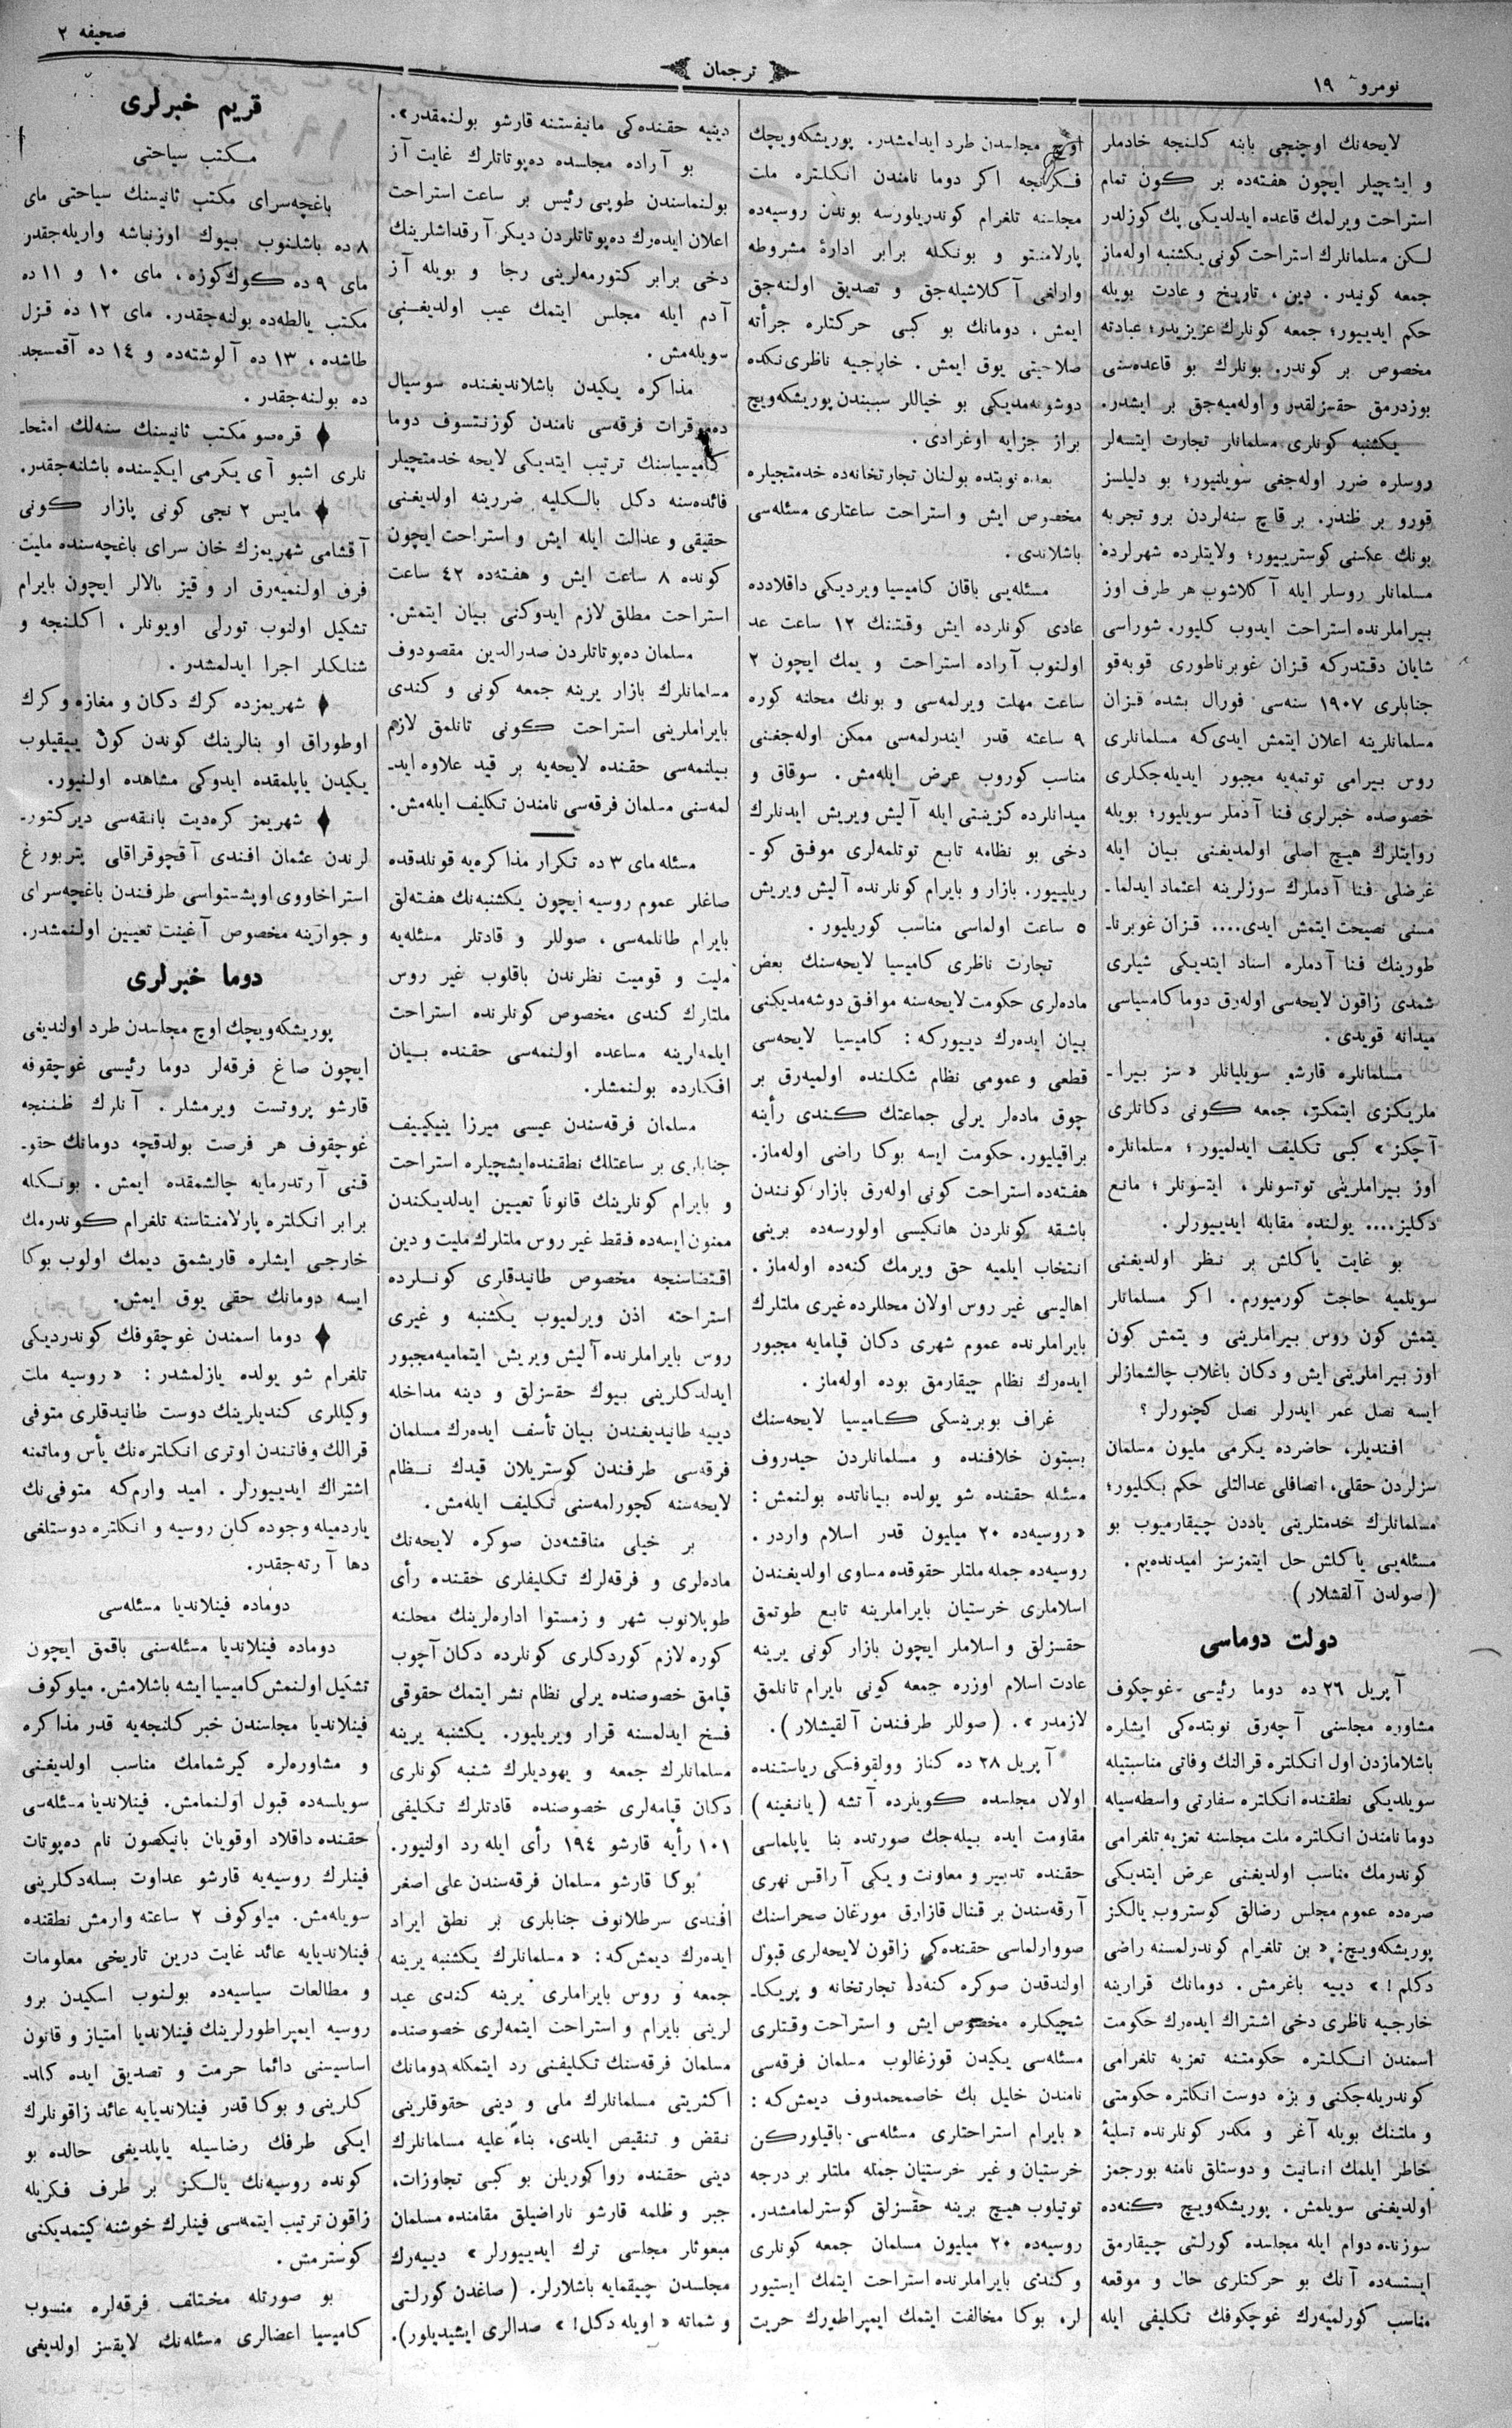 صحیفه ٢
ترجمان
نومرو ١٩
لایحه‌نك اوچنچی بابنه كلنجه خادملر
و ایشچیلر ایچون هفته‌ده بر كون تمام
استراحت ویرلمك قاعده ایدلدیكی پك كوزلدر
لكن مسلمانلرك استراحت كونی یكشنبه اوله‌ماز
جمعه كونیدر. دین، تاریخ و عادت بویله
حكم ایدییور؛ جمعه كونلرك عزیزیدر؛ عبادته
مخصوص بر كوندر. بونلرك بو قاعده‌سنی
بوزدرمق حقسزلقدر و اوله‌میه‌جق بر ایشدر.
یكشنبه كونلری مسلمانلر تجارت ایتسه‌لر
روسلره ضرر اوله‌جغی سویلنیور؛ بو دلیلسز
قورو بر ظندر. بر قاچ سنه‌لردن برو تجربه
بونك عكسنی كوستریبور؛ ولایتلرده شهرلرده
مسلمانلر روسلر ایله آكلاشوب هر طرف اوز
بیراملرنده استراحت ایدوب كلیور. شوراسی
شایان دقتدركه قزان غوبرناطوری قوبه‌قو
جنابلری ١٩٠٧ سنه‌سی فورال بشده قزان
مسلمانلرینه اعلان ایتمش ایدی‌كه مسلمانلری
روس بیرامی توتمه‌یه مجبور ایدیله‌جكلری
خصوصده خبرلری فنا آدملر سویلیور؛ بویله
روایتلرك هیچ اصلی اولمدیغنی بیان ایله
غرضلی فنا آدملرك سوزلرینه اعتماد ایدلما-
مسنی نصیحت ایتمش ایدی.... قزان غوبرنا-
طورینك فنا آدملره اسناد ایتدیكی شیلری
شمدی زاقون لایحه‌سی اوله‌رق دوما كامسیاسی
میدانه قویدی.
مسلمانلره قارشو سویلیانلر « سز بیرا-
ملریكزی ایتمكز، جمعه كونی دكانلری
آچكز » كبی تكلیف ایدلمیور؛ مسلمانلره
اوز بیراملرینی توتسونلر، ایتسونلر؛ مانع
دكلیز.... یولنده مقابله ایدییورلر.
بو غایت یاكلش بر نظر اولدیغنی
سویلمیه حاجت كورمیورم. اكر مسلمانلر
یتمش كون روس بیراملرینی و یتمش كون
اوز بیراملرینی ایش و دكان باغلاب چالشمازلر
ایسه نصل عمر ایدرلر نصل كچنورلر؟
افندیلر، حاضرده یكرمی ملیون مسلمان
سزلردن حقلی، انصافلی عدالتلی حكم بكلیور؛
مسلمانلرك خدمتلرینی یاددن چیقارمیوب بو
مسئله‌یی یاكلش حل ایتمزسز امیدنده‌یم.
( صولدن آلقشلار )
دولت دوماسی
آپریل ٢٦ ده دوما رئیسی غوچكوف
مشاوره مجلسنی آچه‌رق نوبتده‌كی ایشلره
باشلامازدن اول انكلتره قرالنك وفاتی مناسبتیله
سویلدیكی نطقنده انكلتره سفارتی واسطه‌سیله
دوما نامندن انكلتره ملت مجلسنه تعزیه تلغرامی
كوندرمك مناسب اولدیغنی عرض ایتدیكی
صره‌ده عموم مجلس رضالق كوستروب یالكز
پوریشكه‌ویچ: « بن تلغرام كوندرلمسنه راضی
دكلم! » دییه باغرمش. دومانك قرارینه
خارجیه ناظری دخی اشتراك ایده‌رك حكومت
اسمندن انكلتره حكومتنه تعزیه تلغرامی
كوندریله‌جكنی و بزه دوست انكلتره حكومتی
و ملتنك بویله آغر و مكدر كونلرنده تسلیهٔ
خاطر ایلمك انسانیت و دوستلق نامنه بورجمز
اولدیغنی سویلمش. پوریشكه‌ویچ كنه‌ده
سوزنده دوام ایله مجلسده كورلتی چیقارمق
ایستسه‌ده آنك بو حركتلری حال و موقعه
مناسب كورلمیه‌رك غوچكوفك تكلیفی ایله
اوچ مجلسدن طرد ایدلمشدر. پوریشكه‌ویچك
فكرنجه اكر دوما نامندن انكلتره ملت
مجلسنه تلغرام كوندریلورسه بوندن روسیه‌ده
پارلامنتو و بونكله برابر ادارهٔ مشروطه
وارلغی آكلاشیله‌جق و تصدیق اولنه‌جق
ایمش. دومانك بو كبی حركتلره جرأته
صلاحیتی یوق ایمش. خارجیه ناظری‌نكده
دوشونمدیكی بو خیاللر سببندن پوریشكه‌ویچ
براز جزایه اوغرادی.
بعده نوبتده بولنان تجارتخانه‌ده خدمتجیلره
مخصوص ایش و استراحت ساعتلری مسئله‌سی
باشلاندی.
مسئله‌یی باقان كامیسیا ویردیكی داقلادده
عادی كونلرده ایش وقتنك ١٢ ساعت عد
اولنوب آراده استراحت و یمك ایچون ٢
ساعت مهلت ویرلمه‌سی و بونك محلنه كوره
٩ ساعته قدر ایندرلمه‌سی ممكن اوله‌جغنی
مناسب كوروب عرض ایله‌مش. سوقاق و
میدانلرده كزینتی ایله آلیش ویریش ایدنلرك
دخی بو نظامه تابع توتلمه‌لری موفق كو-
ریلییور. بازار و بایرام كونلرنده آلیش ویریش
٥ ساعت اولماسی مناسب كوریلیور.
تجارت ناظری كامیسیا لایحه‌سنك بعض
ماده‌لری حكومت لایحه‌سنه موافق دوشمه‌دیكنی
بیان ایده‌رك دییوركه: كامیسیا لایحه‌سی
قطعی و عمومی نظام شكلنده اولمیه‌رق بر
چوق ماده‌لر یرلی جماعتك كندی رأینه
براقیلیور. حكومت ایسه بوكا راضی اوله‌ماز.
هفته‌ده استراحت كونی اوله‌رق بازار كونندن
باشقه كونلردن هانكیسی اولورسه‌ده برینی
انتخاب ایلمیه حق ویرمك كنه‌ده اوله‌ماز.
اهالیسی غیر روس اولان محللرده غیری ملتلرك
بایراملرنده عموم شهری دكان قپامایه مجبور
ایده‌رك نظام چیقارمق بوده اوله‌ماز.
غراف بوبرینسكی كامیسیا لایحه‌سنك
بسبتون خلافنده و مسلمانلردن حیدروف
مسئله حقنده شو یولده بیاناتده بولنمش:
« روسیه‌ده ٢٠ میلیون قدر اسلام واردر.
روسیه‌ده جمله ملتلر حقوقده مساوی اولدیغندن
اسلاملری خرستیان بایراملرینه تابع طوتمق
حقسزلق و اسلاملر ایچون بازار كونی یرینه
عادت اسلام اوزره جمعه كونی بایرام تانلمق
لازمدر ». ( صوللر طرفندن آلقیشلار ).
آپریل ٢٨ ده كناز وولقوفسكی ریاستنده
اولان مجلسده كویلرده آتشه ( یانغینه )
مقاومت ایده بیله‌جك صورتده بنا یاپلماسی
حقنده تدبیر و معاونت و یكی آراقس نهری
آرقه‌سندن بر قنال قازارق مورغان صحراسنك
صووارلماسی حقنده‌كی زاقون لایحه‌لری قبول
اولندقدن صوكره كنه‌ده تجارتخانه و پریكا-
شچیكلره مخصوص ایش و استراحت وقتلری
مسئله‌سی یكیدن قوزغالوب مسلمان فرقه‌سی
نامندن خلیل بك خاصمحمدوف دیمش‌كه:
« بایرام استراحتلری مسئله‌سی باقیلوركن
خرستیان و غیر خرستیان جمله ملتلر بر درجه
توتیلوب هیچ برینه حقسزلق كوسترلمامشدر.
روسیه‌ده ٢٠ میلیون مسلمان جمعه كونلری
و كندی بایراملرنده استراحت ایتمك ایستیور
لر. بوكا مخالفت ایتمك ایمپراطورك حریت
دینیه حقنده‌كی مانیفستنه قارشو بولنمقدر».
بو آراده مجلسده ده‌پوتاتلرك غایت آز
بولنماسندن طوپی رئیس بر ساعت استراحت
اعلان ایده‌رك ده‌پوتاتلردن دیكر آرقداشلرینك
دخی برابر كتورمه‌لرینی رجا و بویله آز
آدم ایله مجلس ایتمك عیب اولدیغنی
سویله‌مش.
مذاكره یكیدن باشلاندیغنده سوسیال
ده‌موقرات فرقه‌سی نامندن كوزنتسوف دوما
كامیسیاسنك ترتیب ایتدیكی لایحه خدمتچیلر
فائده‌سنه دكل بالكلیه ضررینه اولدیغنی
حقیقی و عدالت ایله ایش و استراحت ایچون
كونده ٨ ساعت ایش و هفته‌ده ٤٢ ساعت
استراحت مطلق لازم ایدوكنی بیان ایتمش.
مسلمان ده‌پوتاتلردن صدرالدین مقصودوف
مسلمانلرك بازار یرینه جمعه كونی و كندی
بایراملرینی استراحت كونی تانلمق لازم
بیلنمه‌سی حقنده لایحه‌یه بر قید علاوه اید-
لمه‌سنی مسلمان فرقه‌سی نامندن تكلیف ایله‌مش.
مسئله مای ٣ ده تكرار مذاكره‌یه قونلدقده
صاغلر عموم روسیه ایچون یكشنبه‌نك هفته‌لق
بایرام طانلمه‌سی، صوللر و قادتلر مسئله‌یه
ملیت و قومیت نظرندن باقلوب غیر روس
ملتلرك كندی مخصوص كونلرنده استراحت
ایلمه‌لرینه مساعده اولنمه‌سی حقنده بیان
افكارده بولنمشلر.
مسلمان فرقه‌سندن عیسی میرزا ینیكییف
جنابلری بر ساعتلك نطقنده ایشچیلره استراحت
و بایرام كونلرینك قانوناً تعیین ایدلدیكندن
ممنون ایسه‌ده فقط غیر روس ملتلرك ملیت و دین
اقتضاسنجه مخصوص طانیدقلری كونلرده
استراحته اذن ویرلمیوب یكشنبه و غیری
روس بایراملرنده آلیش ویریش ایتمامیه مجبور
ایدلدكلرینی بیوك حقسزلق و دینه مداخله
دییه طانیدیغندن بیان تأسف ایده‌رك مسلمان
فرقه‌سی طرفندن كوستریلان قیدك نظام
لایحه‌سنه كچورلمه‌سنی تكلیف ایله‌مش.
بر خیلی مناقشه‌دن صوكره لایحه‌نك
ماده‌لری و فرقه‌لرك تكلیفلری حقنده رأی
طوپلانوب شهر و زمستوا اداره‌لرینك محلنه
كوره لازم كوردكلری كونلرده دكان آچوب
قپامق خصوصنده یرلی نظام نشر ایتمك حقوقی
فسخ ایدلمسنه قرار ویریلیور. یكشنبه یرینه
مسلمانلرك جمعه و یهودیلرك شنبه كونلری
دكان قپامه‌لری خصوصنده قادتلرك تكلیفی
١٠١ رأیه قارشو ١٩٤ رأی ایله رد اولنیور.
بوكا قارشو مسلمان فرقه‌سندن علی اصغر
افندی سرطلانوف جنابلری بر نطق ایراد
ایده‌رك دیمش‌كه: « مسلمانلرك یكشنبه یرینه
جمعه و روس بایراملری یرینه كندی عید
لرینی بایرام و استراحت ایتمه‌لری خصوصنده
مسلمان فرقه‌سنك تكلیفنی رد ایتمكله دومانك
اكثریتی مسلمانلرك ملی و دینی حقوقلرینی
نقض و تنقیص ایلدی. بناءً علیه مسلمانلرك
دینی حقنده رواكوریلن بو كبی تجاوزات،
جبر و ظلمه قارشو ناراضیلق مقامنده مسلمان
مبعوثلر مجلسی ترك ایدییورلر » دییه‌رك
مجلسدن چیقمایه باشلارلر. ( صاغدن كورلتی
و شماته « اویله دكل! » صدالری ایشیدیلور).
قریم خبرلری
مكتب سیاحتی
باغچه‌سرای مكتب ثانیسنك سیاحتی مای
٨ ده باشلنوب بیوك اوزنباشه واریله‌جقدر
مای ٩ ده كوك‌كوزه، مای ١٠ و ١١ ده
مكتب یالطه‌ده بولنه‌جقدر. مای ١٢ ده قزل
طاشده، ١٣ ده آلوشته‌ده و ١٤ ده آقمسجد
ده بولنه‌جقدر.
♦ قره‌سو مكتب ثانیسنك سنه‌لك امتحا-
نلری اشبو آی یكرمی ایكیسنده باشلنه‌جقدر.
♦ مایس ٢ نجی كونی پازار كونی
آقشامی شهریمزك خان سرای باغچه‌سنده ملیت
فرق اولنمیه‌رق ار و قیز بالالر ایچون بایرام
تشكیل اولنوب تورلی اویونلر، اكلنجه و
شنلكلر اجرا ایدلمشدر.
♦ شهریمزده كرك دكان و مغازه و كرك
اوطوراق او بنالرینك كوندن كون ییقیلوب
یكیدن یاپلمقده ایدوكی مشاهده اولنیور.
♦ شهریمز كره‌دیت بانقه‌سی دیركتور-
لرندن عثمان افندی آقچوقراقلی پتربورغ
استراخاووی اوبشستواسی طرفندن باغچه‌سرای
و جوارینه مخصوص آغینت تعیین اولنمشدر.
دوما خبرلری
پوریشكه‌ویچك اوچ مجلسدن طرد اولندیغی
ایچون صاغ فرقه‌لر دوما رئیسی غوچقوفه
قارشو پروتست ویرمشلر. آنلرك ظننجه
غوچقوف هر فرصت بولدقچه دومانك حقو-
قنی آرتدرمایه چالشمقده ایمش. بونكله
برابر انكلتره پارلامنتاسنه تلغرام كوندرمك
خارجی ایشلره قاریشمق دیمك اولوب بوكا
ایسه دومانك حقی یوق ایمش.
♦ دوما اسمندن غوچقوفك كوندردیكی
تلغرام شو یولده یازلمشدر: « روسیه ملت
وكیللری كندیلرینك دوست طانیدقلری متوفی
قرالك وفاتندن اوتری انكلتره‌نك یأس و ماتمنه
اشتراك ایدییورلر. امید وارم‌كه متوفی‌نك
یاردمیله وجوده كلن روسیه و انكلتره دوستلغی
دها آرته‌جقدر.
دوماده فینلاندیا مسئله‌سی
دوماده فینلاندیا مسئله‌سنی باقمق ایچون
تشكیل اولنمش كامیسیا ایشه باشلامش. میلوكوف
فینلاندیا مجلسندن خبر كلنجه‌یه قدر مذاكره
و مشاوره‌لره كیرشمامك مناسب اولدیغنی
سویلسه‌ده قبول اولنمامش. فینلاندیا مسئله‌سی
حقنده داقلاد اوقویان بانیكصون نام ده‌پوتات
فینلرك روسیه‌یه قارشو عداوت بسله‌دكلرینی
سویله‌مش. میلوكوف ٢ ساعته وارمش نطقنده
فینلاندیایه عائد غایت درین تاریخی معلومات
و مطالعات سیاسیه‌ده بولنوب اسكیدن برو
روسیه ایمپراطورلرینك فینلاندیا امتیاز و قانون
اساسیسنی دائما حرمت و تصدیق ایده كلد-
كلرینی و بوكا قدر فینلاندیایه عائد زاقونلرك
ایكی طرفك رضاسیله یاپلدیغی حالده بو
كونده روسیه‌نك یالكز بر طرف فكریله
زاقون ترتیب ایتمه‌سی فینلرك خوشنه كیتمدیكنی
كوسترمش.
بو صورتله مختلف فرقه‌لره منسوب
كامیسیا اعضالری مسئله‌نك لایقسز اولدیغی